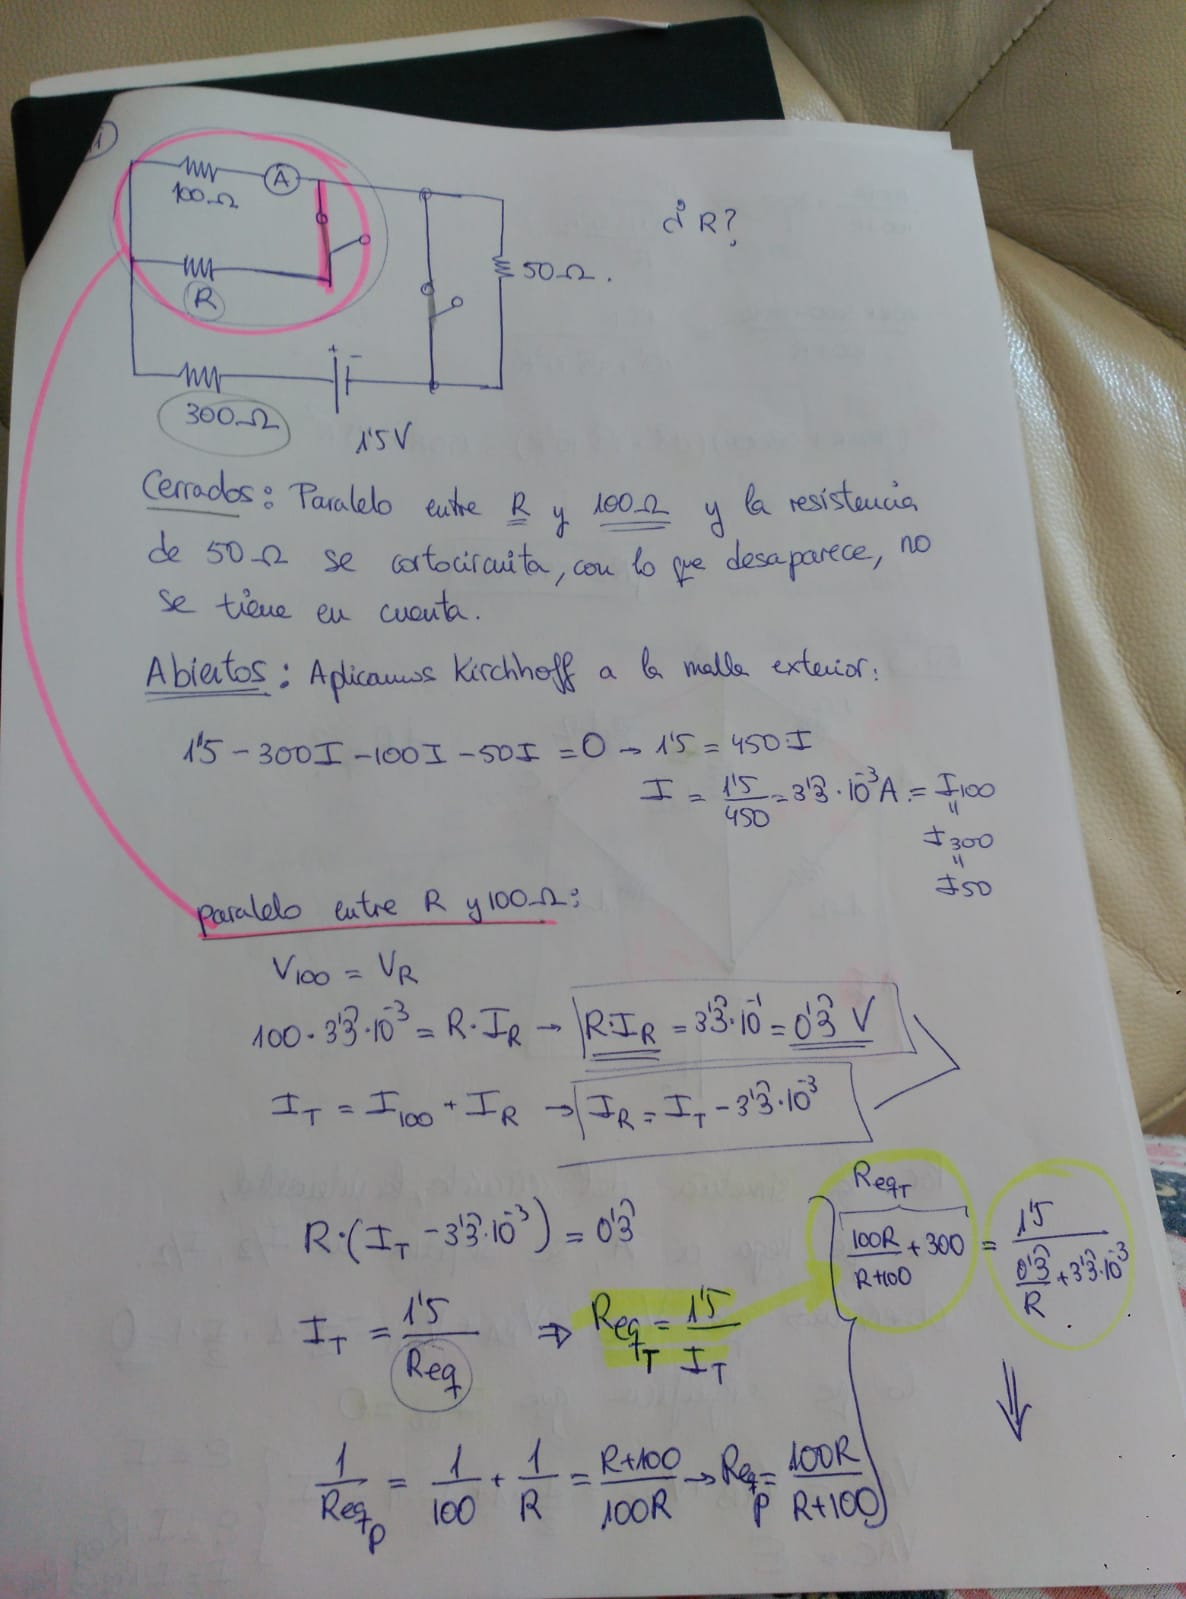 1
100Ω
A
¿R?
50Ω.
R
+ -
300Ω
1'5V
Cerrados: Paralelo entre R y 100Ω y la resistencia
de 50Ω se cortocircuita, con lo que desaparece, no
se tiene en cuenta.
Abiertos: Aplicamos Kirchhoff a la malla exterior:
1'5 - 300I - 100I - 50I = 0 → 1'5 = 450·I
I = 1'5/450 = 3'3̂·10⁻³A = I100
=
I300
=
I50
paralelo entre R y 100Ω:
V100 = VR
100·3'3̂·10⁻³ = R·IR → R·IR = 3'3̂·10⁻¹ = 0'3̂ V
IT = I100 + IR → IR = IT - 3'3̂·10⁻³
ReqT
R·(IT - 3'3̂·10⁻³) = 0'3̂
100R/(R+100) + 300 = 1'5/(0'3̂/R + 3'3̂·10⁻³)
IT = 1'5/Req ⇒ ReqT = 1'5/IT
⇓
1/Reqp = 1/100 + 1/R = (R+100)/100R → Reqp = 100R/(R+100)